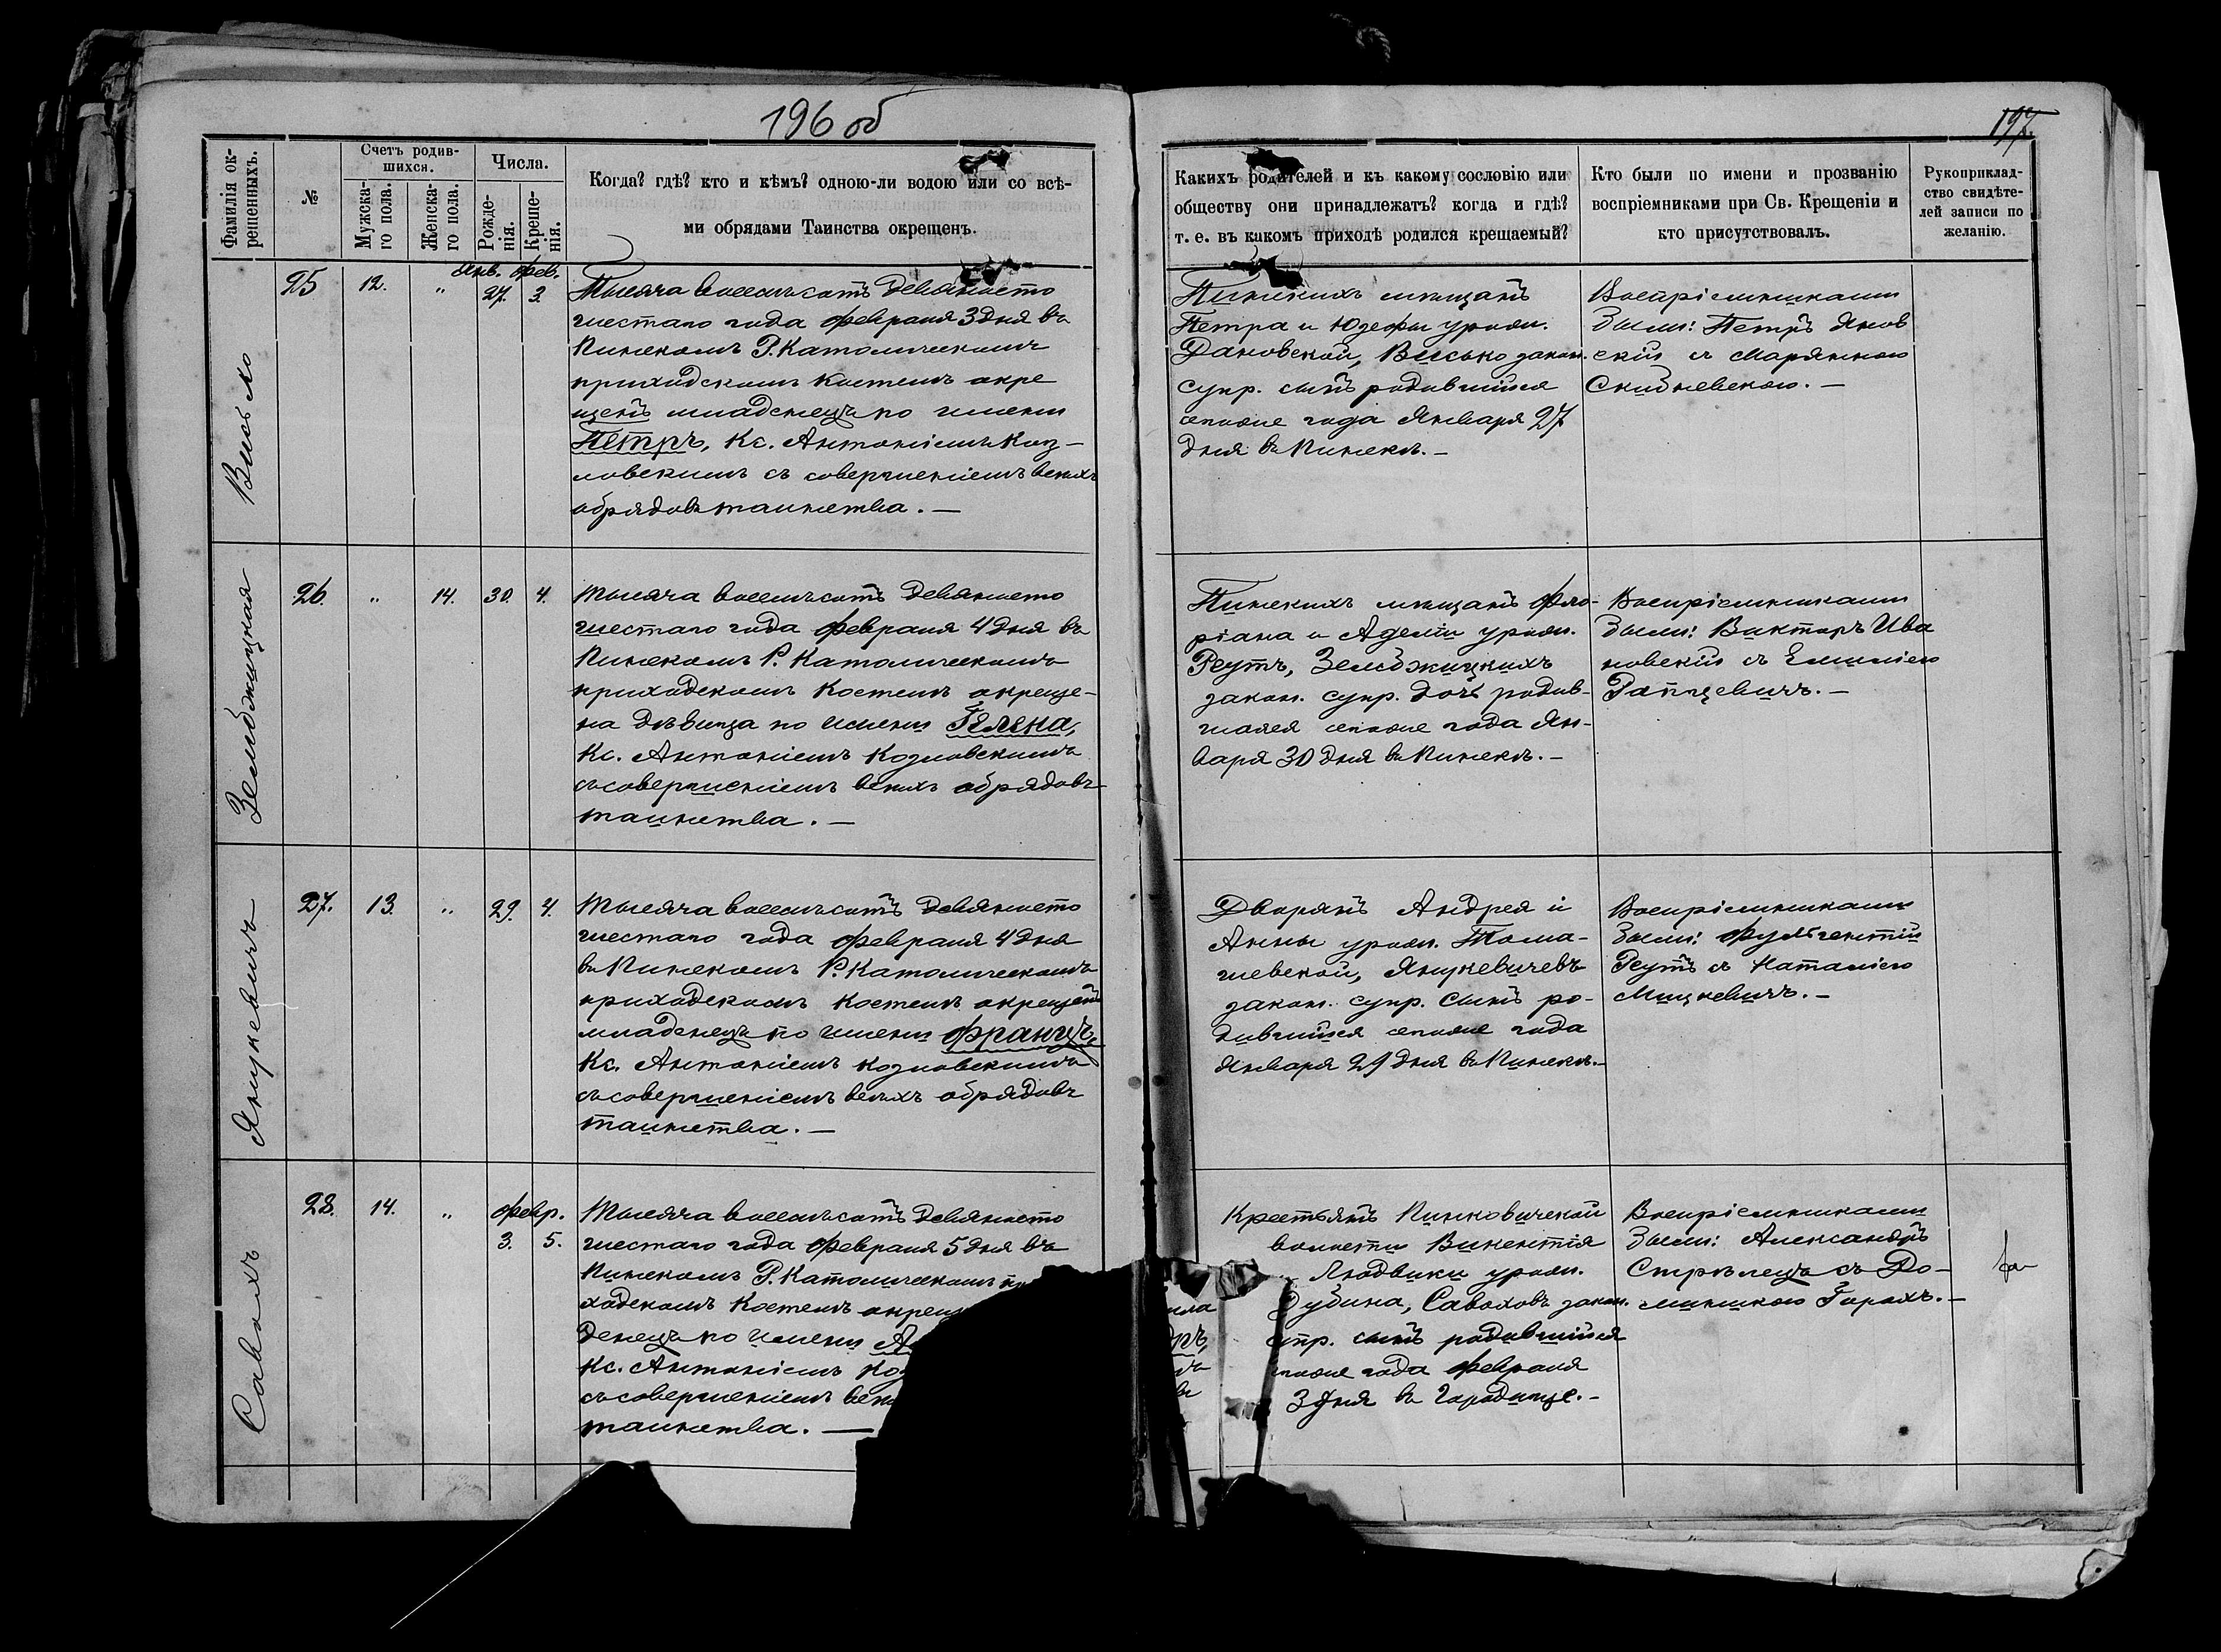 196 об
197.
Фамилія ок-
рещенныхъ.
№
Счетъ родив-
шихся.
Мужска-
го пола.
Женска-
го пола.
Числа.
Рожде-
нія.
Креще-
нія.
Когда? гдѣ? кто и кѣмъ? одною-ли водою или со всѣ-
ми обрядами Таинства окрещенъ.
Какихъ родителей и къ какому сословію или
обществу они принадлежатъ? когда и гдѣ?
т. е. въ какомъ приходѣ родился крещаемый?
Кто были по имени и прозванію
воспріемниками при Св. Крещеніи и
кто присутствовалъ.
Рукоприклад-
ство свидѣте-
лей записи по
желанію.
Висько
25
12.
"
Янв. Фев.
27. 3.
Тысяча восемьсотъ девяносто
шестаго года Февраля 3 дня въ
Пинскомъ Р. Католическомъ
приходскомъ костелѣ окре
щенъ младенецъ по имени
Петръ, Кс. Антоніемъ Коз-
ловскимъ съ совершеніемъ всѣхъ
обрядовъ таинства. —
Пинскихъ мѣщанъ
Петра и Юзефы урожд.
Дановской, Висько закон.
супр. сынъ родившійся
сегоже года Января 27
дня въ Пинскѣ. —
Воспріемниками
были: Петръ Янов
скій съ Марянною
Скибневскою. —
Зембжицкая
26.
"
14.
30.
4.
Тысяча восемьсотъ девяносто
шестаго года Февраля 4 дня въ
Пинскомъ Р. Католическомъ
приходскомъ костелѣ окреще-
на дѣвица по имени Гелена,
Кс. Антоніемъ Козловскимъ
съ совершеніемъ всѣхъ обрядовъ
таинства. —
Пинскихъ мѣщанъ Фло-
ріана и Аделіи урожд.
Реутъ, Зембжицкихъ
закон. супр. дочь родив-
шаяся сегоже года Ян-
варя 30 дня въ Пинскѣ. —
Воспріемниками
были: Викторъ Ива
новскій съ Емиліею
Янцкевичъ
27.
13.
"
29.
4.
Тысяча восемьсотъ девяносто
шестаго года Февраля 4 дня
въ Пинскомъ Р. Католическомъ
приходскомъ костелѣ окрещенъ
младенецъ по имени Францъ,
Кс. Антоніемъ Козловскимъ
съ совершеніемъ всѣхъ обрядовъ
таинства. —
Дворянъ Андрея и
Анны урожд. Тома-
шевской, Янцкевичевъ
закон. супр. сынъ ро-
дившійся сегоже года
Января 29 дня въ Пинскѣ. —
Воспріемниками
были: Фульгентій
Реутъ съ Наталіею
Мицкевичъ. —
Савохъ
28.
14.
"
Февр.
3. 5.
Тысяча восемьсотъ девяносто
шестаго года Февраля 5 дня въ
Пинскомъ Р. Католическомъ пр
ходскомъ костелѣ окрещ
денецъ по имени А
Кс. Антоніемъ Коз
съ совершеніемъ всѣ
таинства. —
Крестьянъ Пинковичской
волости Викентія
Людвики урожд.
Дубина, Савоховъ закон.
супр. сынъ родившійся
года Февраля
3 дня въ Городище. —
Воспріемниками
были: Александръ
Стрѣлецъ съ До-
миникою Горохъ. —